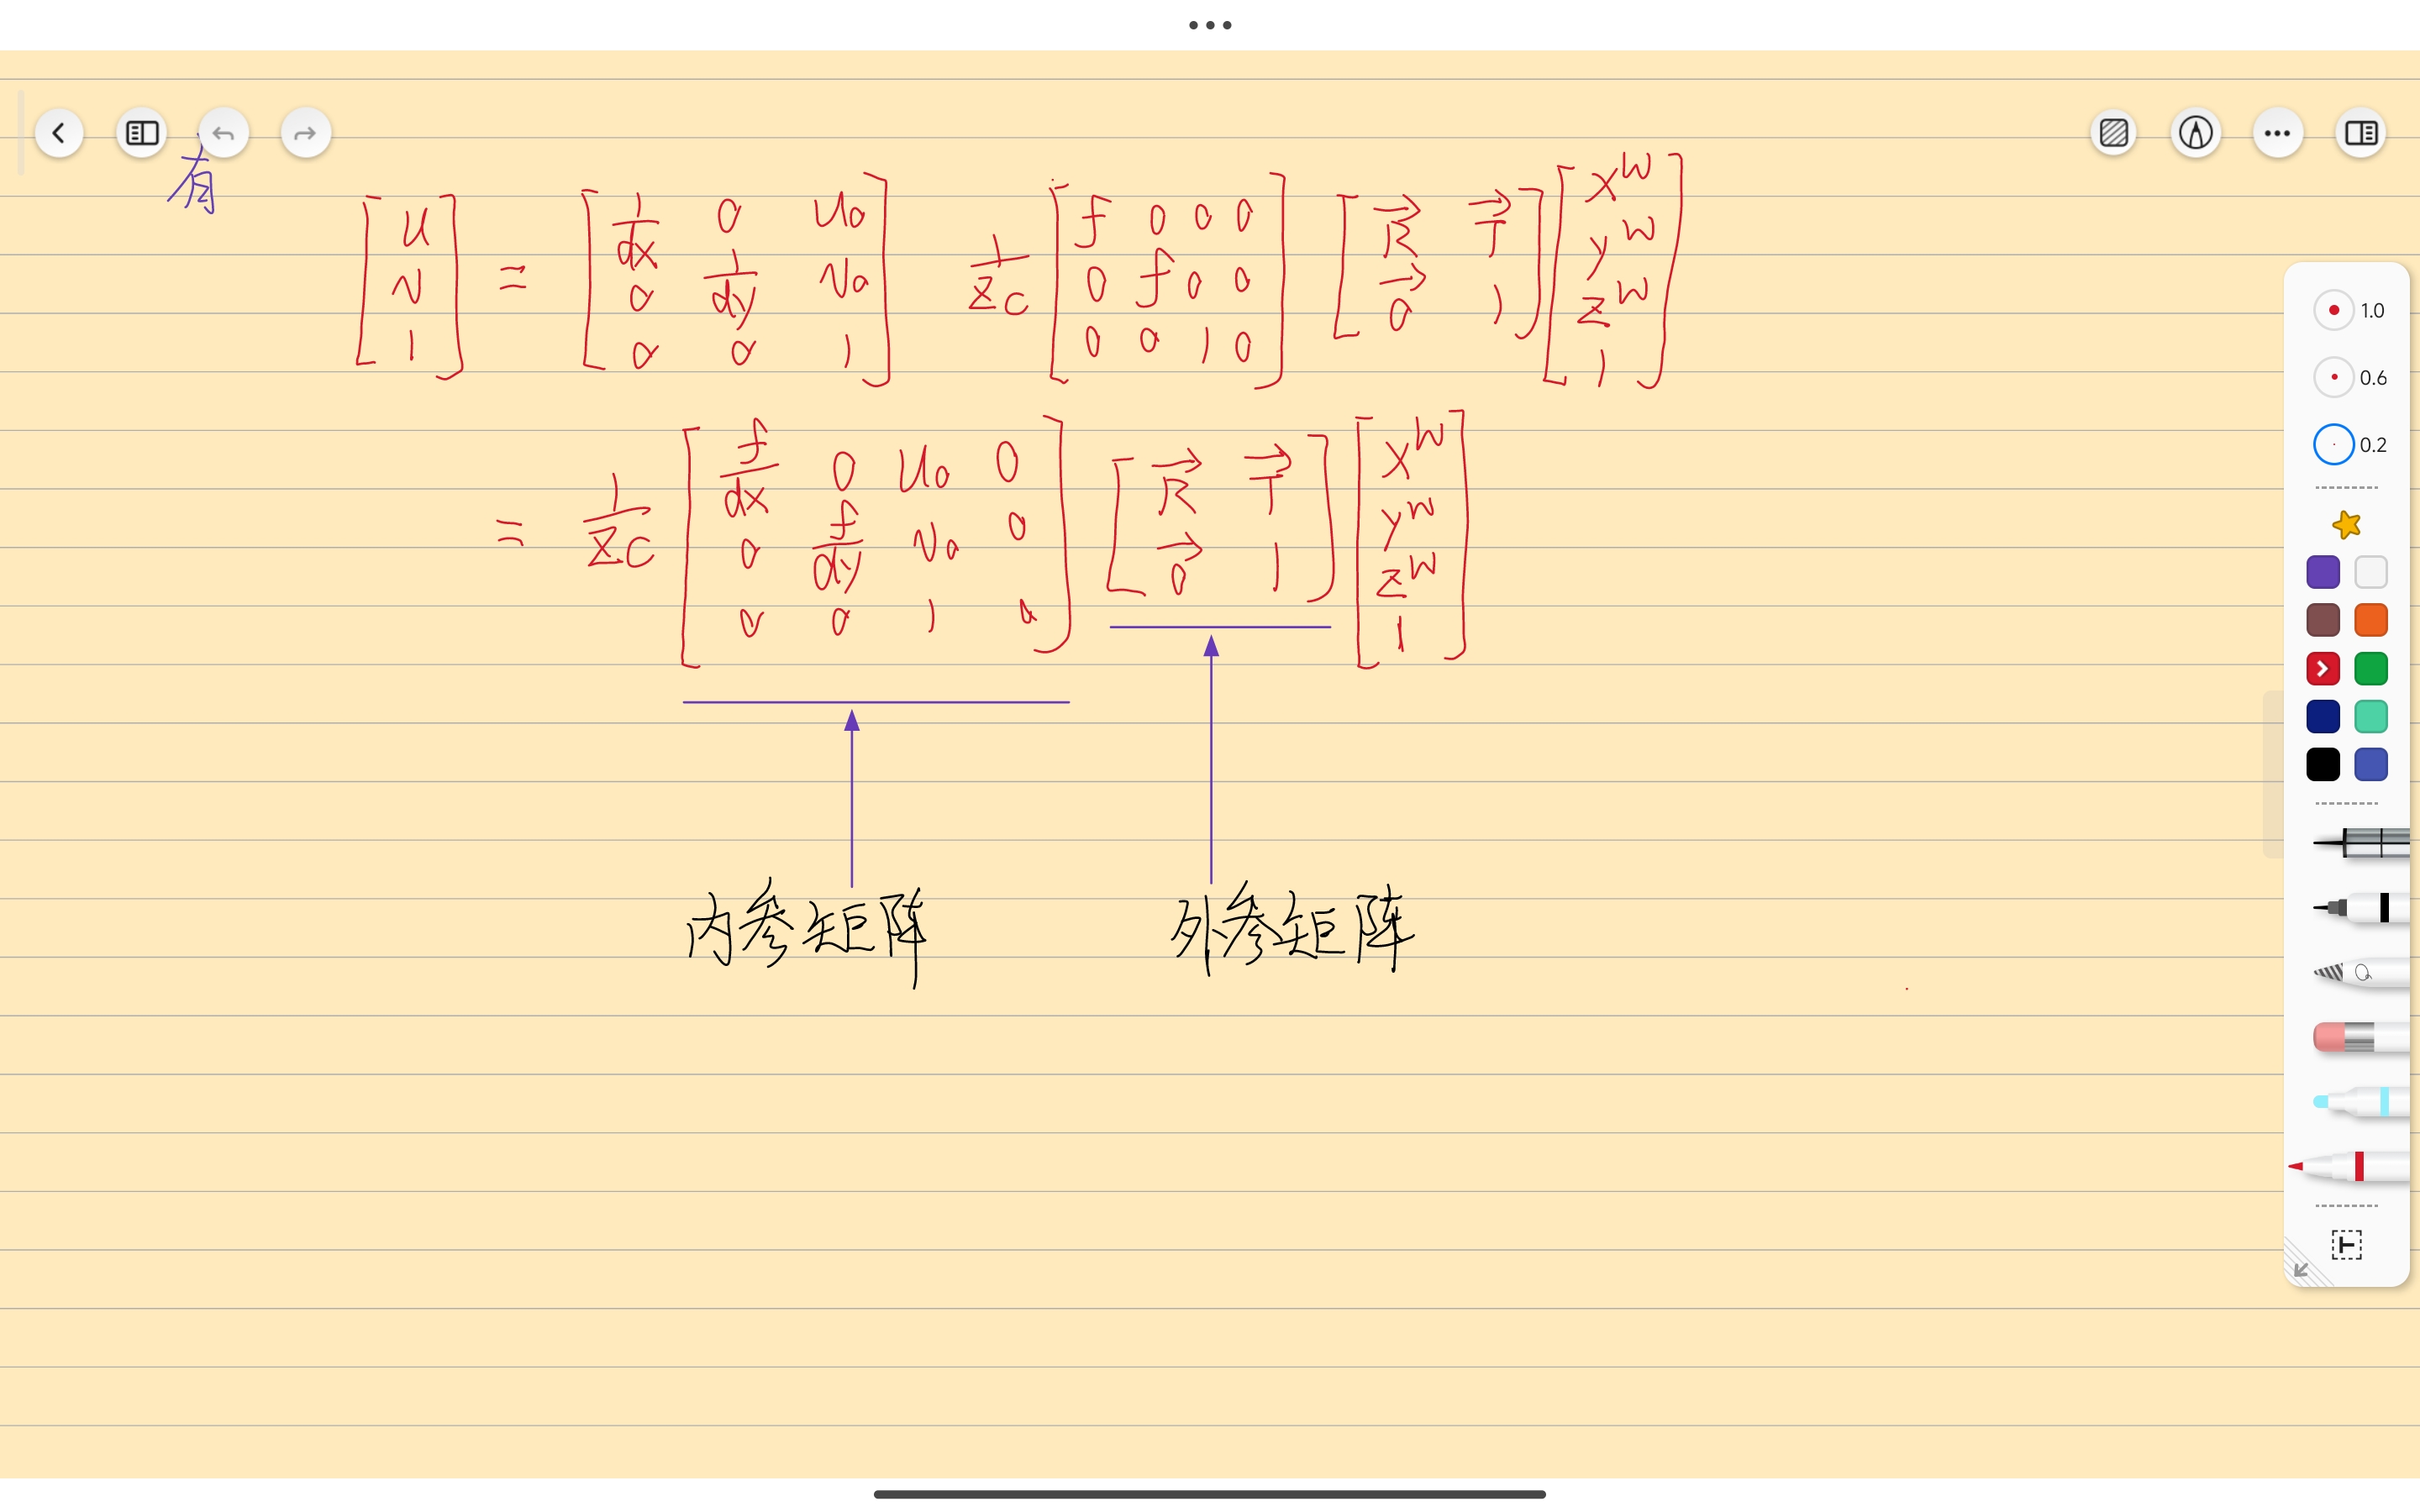 有
[u v 1] = [1/dx 0 u₀; 0 1/dy v₀; 0 0 1] 1/Zc [f 0 0 0; 0 f 0 0; 0 0 1 0] [R⃗ T⃗; 0⃗ 1] [x^W y^W z^W 1]
= 1/Zc [f/dx 0 u₀ 0; 0 f/dy v₀ 0; 0 0 1 0] [R⃗ T⃗; 0⃗ 1] [x^W y^W z^W 1]
内参矩阵 外参矩阵
1.0
0.6
0.2